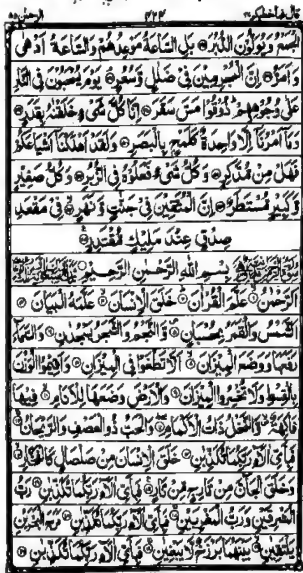 قال فما خطبکم ٢٧ ٤٢٣ الرحمن ٥٥
الْجَمْعُ وَيُوَلُّوْنَ الدُّبُرَ ۞ بَلِ السَّاعَةُ مَوْعِدُهُمْ وَالسَّاعَةُ اَدْهٰى
وَاَمَرُّ ۞ اِنَّ الْمُجْرِمِيْنَ فِيْ ضَلٰلٍ وَّسُعُرٍ ۞ يَوْمَ يُسْحَبُوْنَ فِي النَّارِ
عَلٰى وُجُوْهِهِمْ ؕ ذُوْقُوْا مَسَّ سَقَرَ ۞ اِنَّا كُلَّ شَيْءٍ خَلَقْنٰهُ بِقَدَرٍ ۞
وَمَآ اَمْرُنَآ اِلَّا وَاحِدَةٌ كَلَمْحٍۢ بِالْبَصَرِ ۞ وَلَقَدْ اَهْلَكْنَآ اَشْيَاعَكُمْ
فَهَلْ مِنْ مُّدَّكِرٍ ۞ وَكُلُّ شَيْءٍ فَعَلُوْهُ فِي الزُّبُرِ ۞ وَكُلُّ صَغِيْرٍ
وَّكَبِيْرٍ مُّسْتَطَرٌ ۞ اِنَّ الْمُتَّقِيْنَ فِيْ جَنّٰتٍ وَّنَهَرٍ ۞ فِيْ مَقْعَدِ
صِدْقٍ عِنْدَ مَلِيْكٍ مُّقْتَدِرٍ ۞
بِسْمِ اللّٰهِ الرَّحْمٰنِ الرَّحِيْمِ
اَلرَّحْمٰنُ ۞ عَلَّمَ الْقُرْاٰنَ ۞ خَلَقَ الْاِنْسَانَ ۞ عَلَّمَهُ الْبَيَانَ ۞
اَلشَّمْسُ وَالْقَمَرُ بِحُسْبَانٍ ۞ وَّالنَّجْمُ وَالشَّجَرُ يَسْجُدٰنِ ۞ وَالسَّمَآءَ
رَفَعَهَا وَوَضَعَ الْمِيْزَانَ ۞ اَلَّا تَطْغَوْا فِي الْمِيْزَانِ ۞ وَاَقِيْمُوا الْوَزْنَ
بِالْقِسْطِ وَلَا تُخْسِرُوا الْمِيْزَانَ ۞ وَالْاَرْضَ وَضَعَهَا لِلْاَنَامِ ۞ فِيْهَا
فَاكِهَةٌ ۙ وَّالنَّخْلُ ذَاتُ الْاَكْمَامِ ۞ وَالْحَبُّ ذُو الْعَصْفِ وَالرَّيْحَانُ ۞
فَبِاَيِّ اٰلَآءِ رَبِّكُمَا تُكَذِّبٰنِ ۞ خَلَقَ الْاِنْسَانَ مِنْ صَلْصَالٍ كَالْفَخَّارِ ۞
وَخَلَقَ الْجَآنَّ مِنْ مَّارِجٍ مِّنْ نَّارٍ ۞ فَبِاَيِّ اٰلَآءِ رَبِّكُمَا تُكَذِّبٰنِ ۞ رَبُّ
الْمَشْرِقَيْنِ وَرَبُّ الْمَغْرِبَيْنِ ۞ فَبِاَيِّ اٰلَآءِ رَبِّكُمَا تُكَذِّبٰنِ ۞ مَرَجَ الْبَحْرَيْنِ
يَلْتَقِيٰنِ ۞ بَيْنَهُمَا بَرْزَخٌ لَّا يَبْغِيٰنِ ۞ فَبِاَيِّ اٰلَآءِ رَبِّكُمَا تُكَذِّبٰنِ ۞